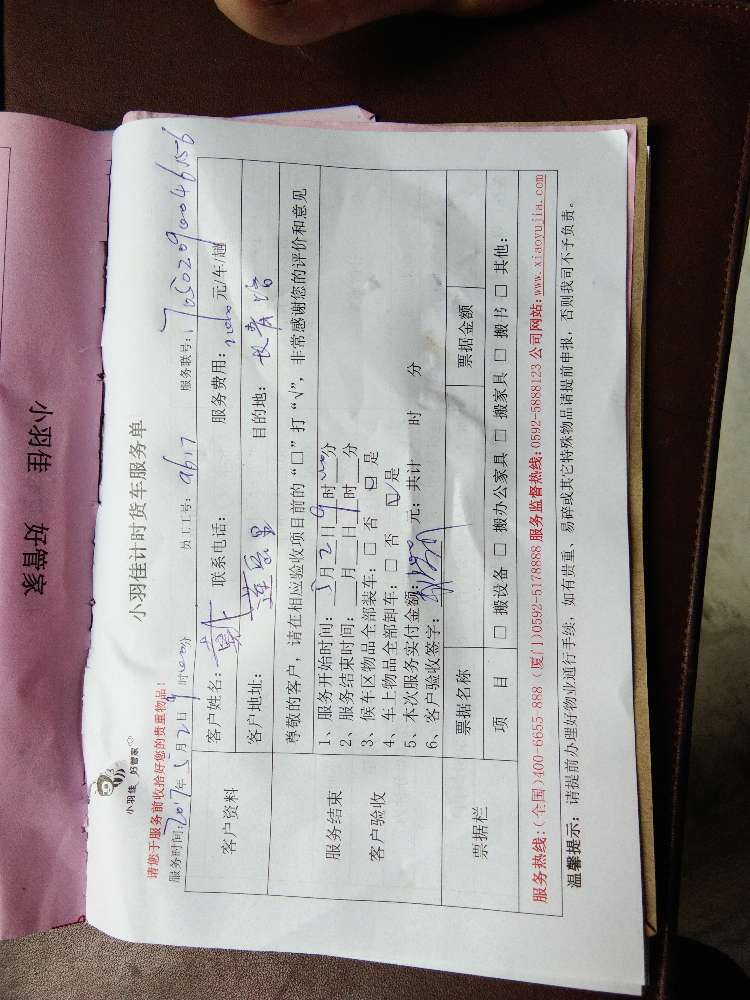 小羽佳 好管家
小羽佳 好管家
小羽佳计时货车服务单
请您于服务前收拾好您的贵重物品!
服务时间:2017年5月2日9时00分 员工工号:9617 服务联号:
客户资料
客户姓名: 联系电话: 服务费用: 元/车/趟
客户地址:莲岳里 目的地:长青路
服务结束
客户验收
尊敬的客户,请在相应验收项目前的“□”打“√”,非常感谢您的评价和意见
1、服务开始时间:5月2日9时00分
2、服务结束时间:__月__日__时__分
3、候车区物品全部装车:□ 否 □ 是
4、车上物品全部卸车:□ 否 ☑ 是
5、本次服务实付金额: 元;共计 时 分
6、客户验收签字:
票据栏
票据名称 票据金额
项 目 □ 搬设备 □ 搬办公家具 □ 搬家具 □ 搬书 □ 其他:
服务热线:(全国)400-6655-888 (厦门)0592-5178888 服务监督热线:0592-5888123 公司网站:www.xiaoyujia.com
温馨提示:请提前办理好物业通行手续,如有贵重、易碎或其它特殊物品请提前申报,否则我司不予负责。